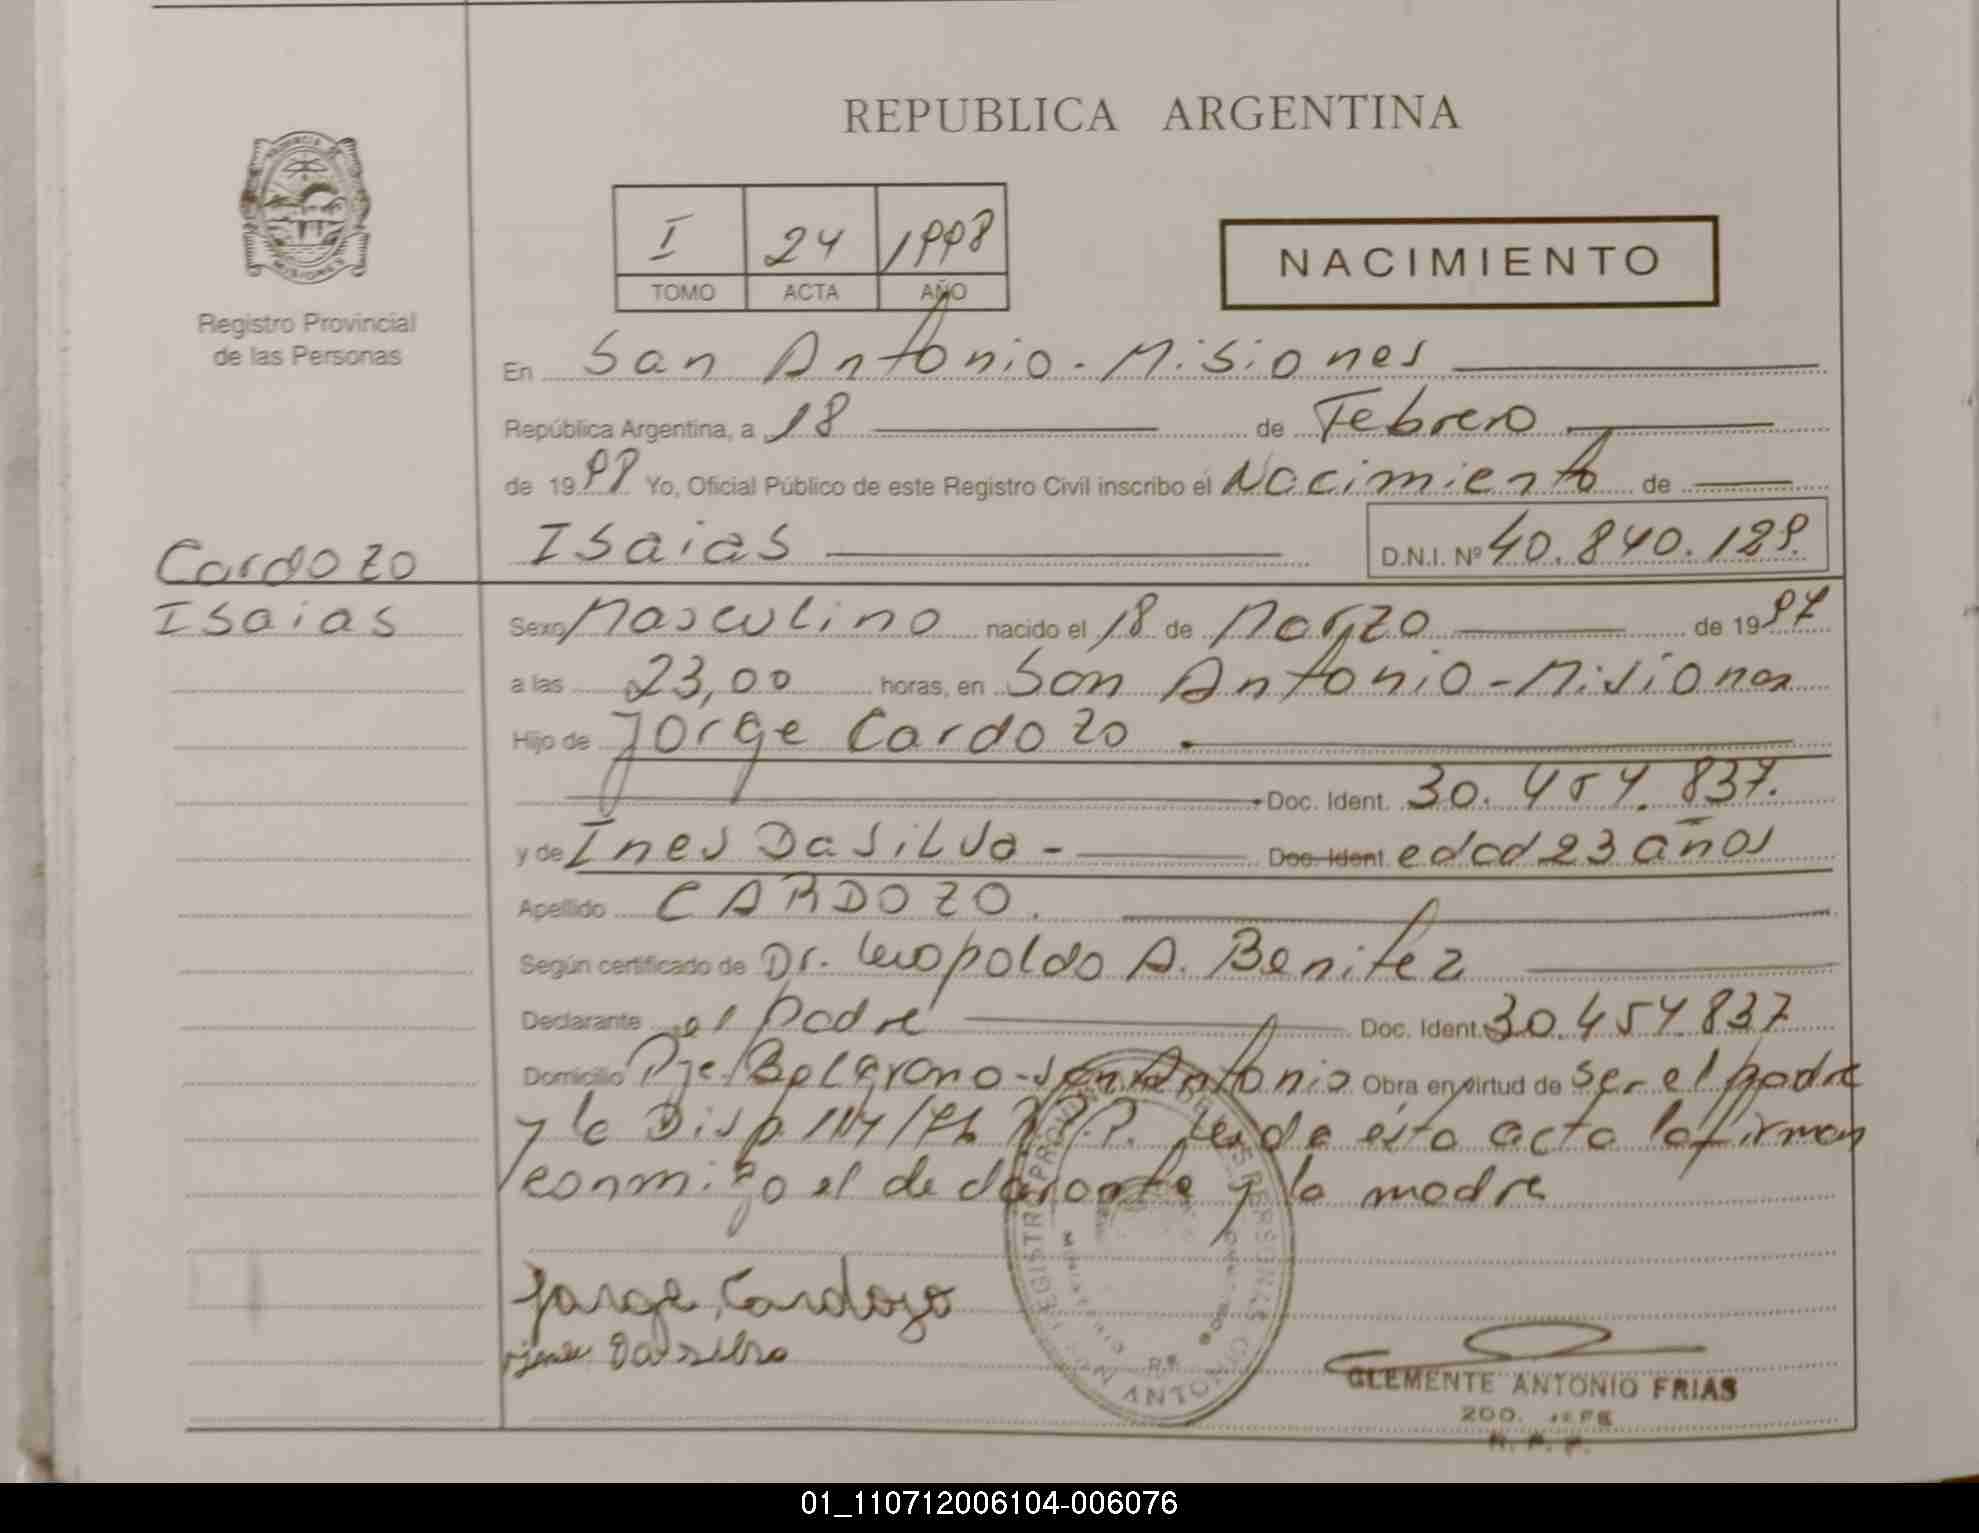 REPUBLICA ARGENTINA
PROVINCIA DE
MISIONES
Registro Provincial
de las Personas
I 24 1998
TOMO ACTA AÑO
NACIMIENTO
En San Antonio - Misiones
República Argentina, a 18 de Febrero
de 1998 Yo, Oficial Público de este Registro Civil inscribo el Nacimiento de
Isaias D.N.I. Nº 40.840.129.
Cardozo
Isaias
Sexo Masculino nacido el 18 de Marzo de 1997
a las 23,00 horas, en San Antonio - Misiones
Hijo de Jorge Cardozo
Doc. Ident. 30.454.837.
y de Ines Da Silva - Doc. Ident. edad 23 años
Apellido CARDOZO.
Según certificado de Dr. Leopoldo A. Benitez
Declarante el padre Doc. Ident. 30.454.837
Domicilio Pje. Belgrano - San Antonio Obra en virtud de ser el padre
y la Disp. 114/96 R.P.P. Leida esta acta la firman
conmigo el declarante y la madre
Jorge Cardozo
Da silva
REGISTRO PROVINCIAL DE LAS PERSONAS
SAN ANTONIO
CLEMENTE ANTONIO FRIAS
JEFE
R. P. P.
01_110712006104-006076